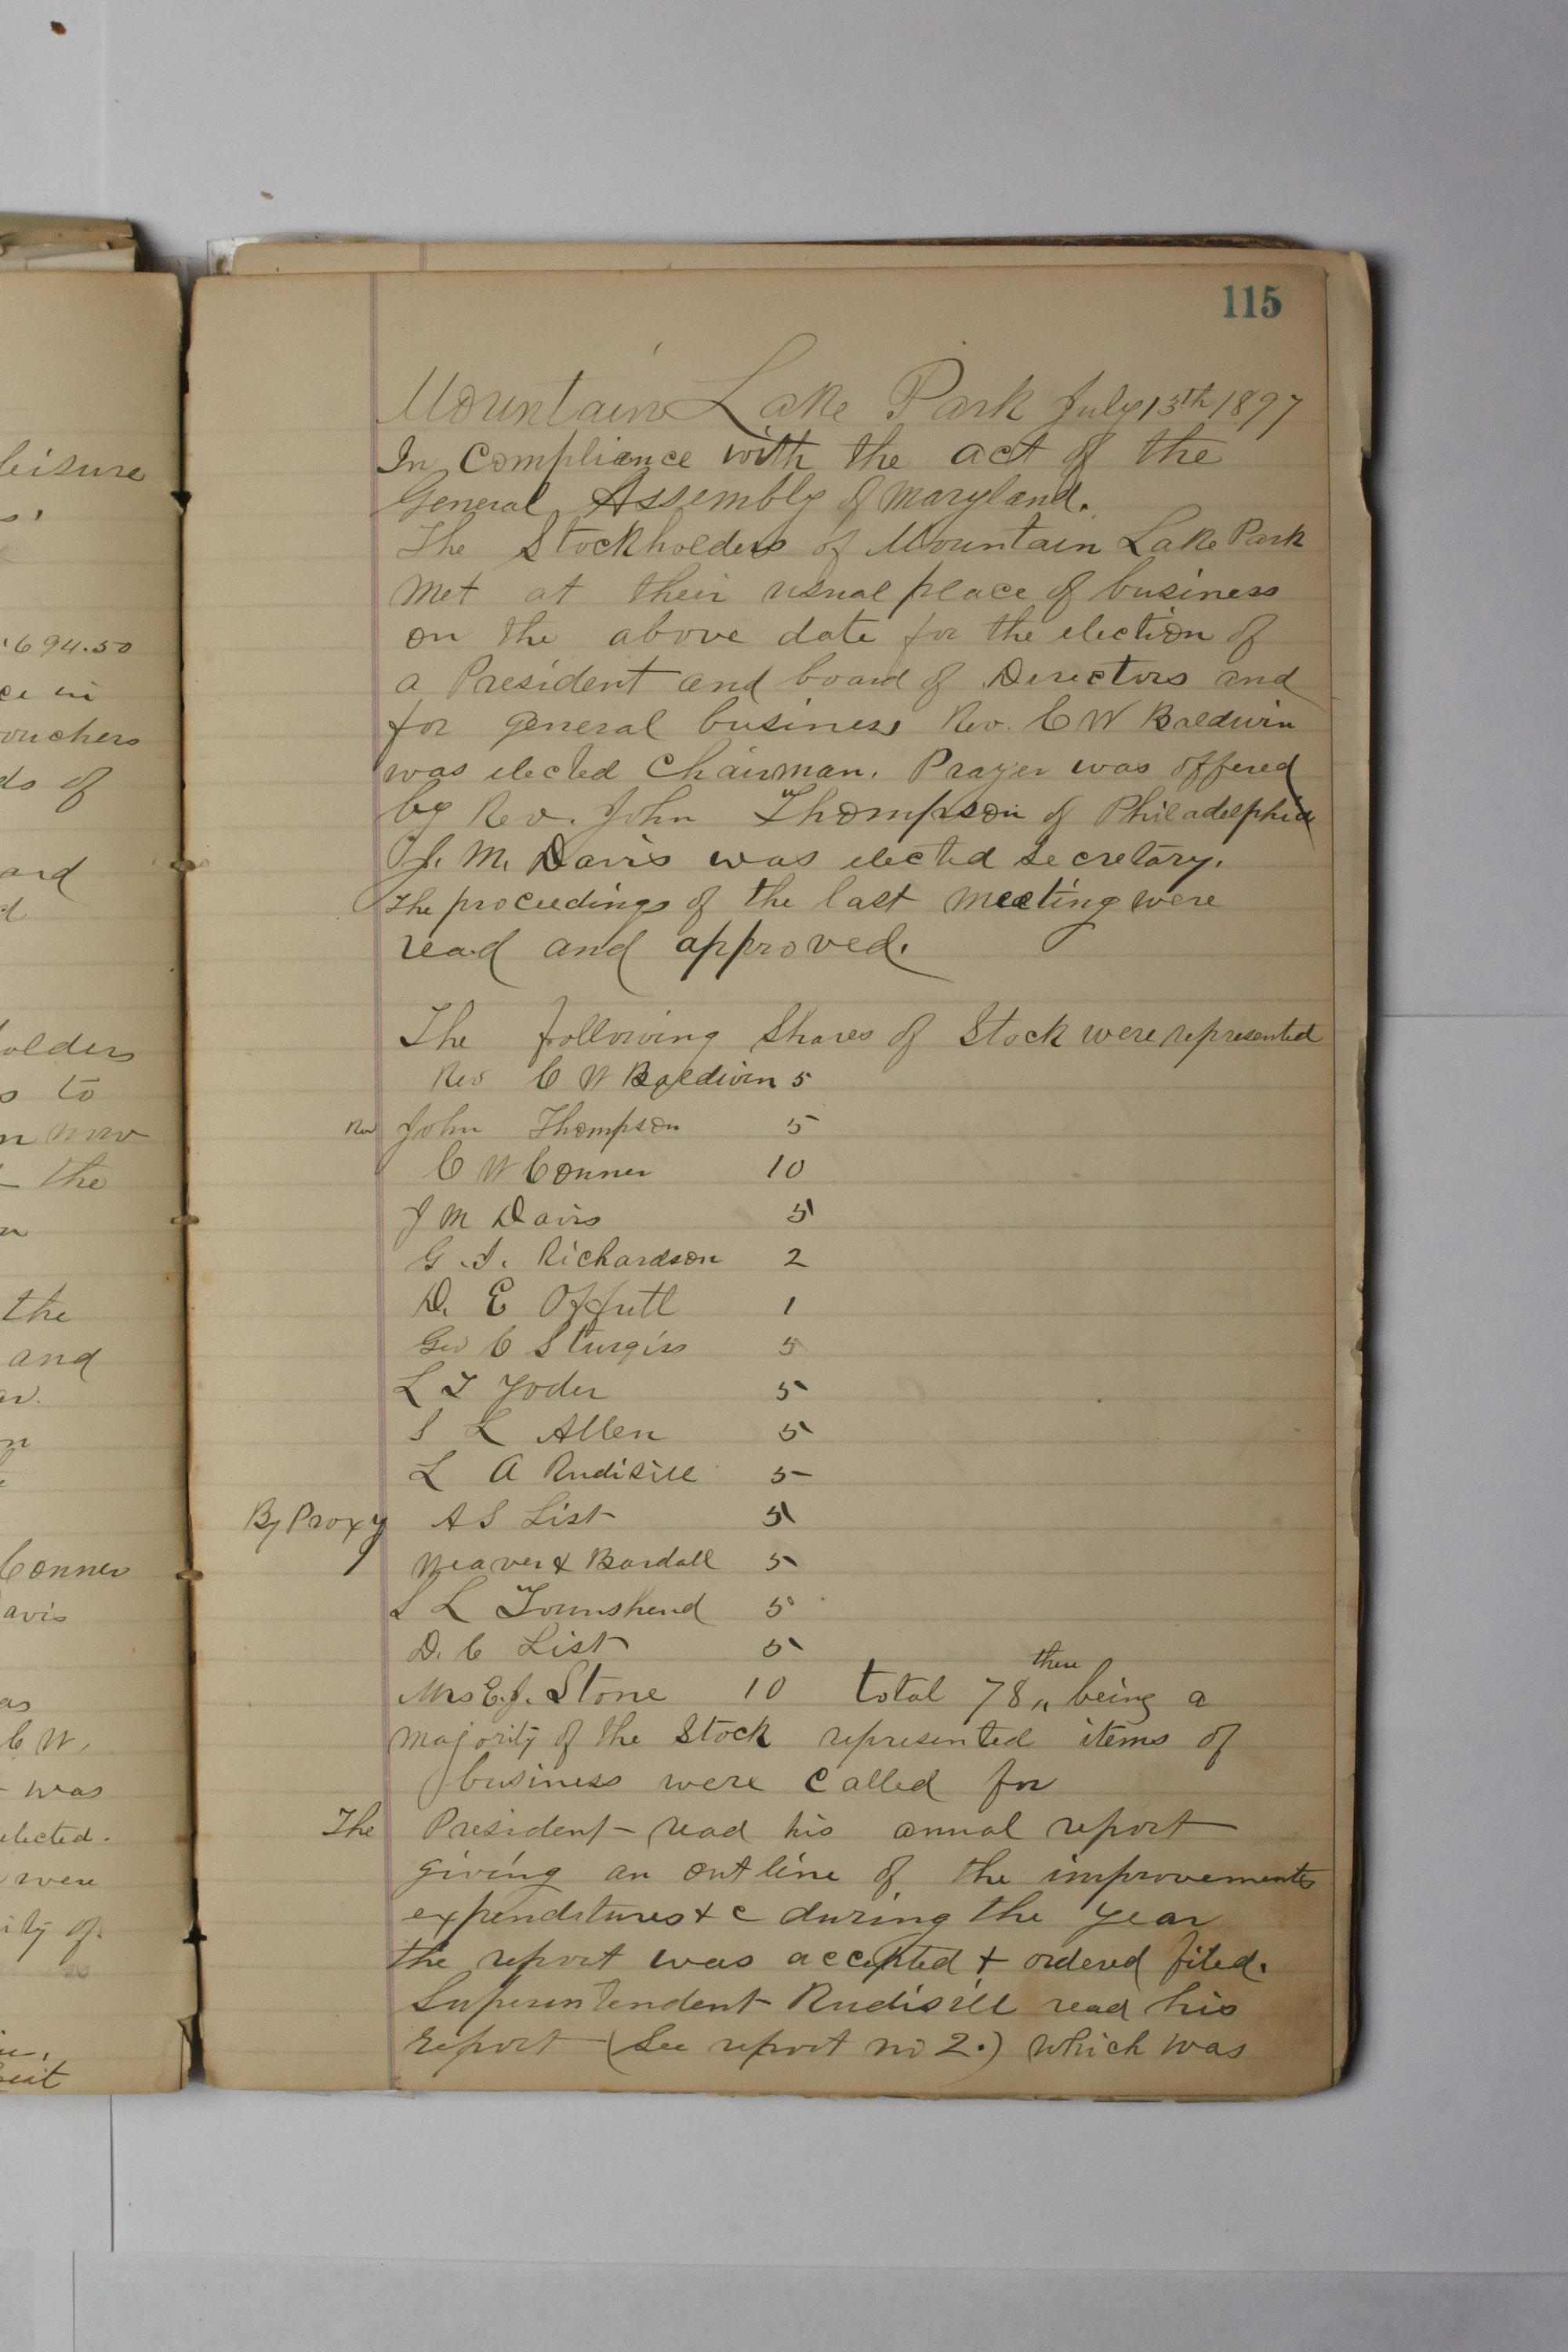 leisure
694.50
ce in
ouchers
ds of
and
olders
s to
n now
the
the
and
Conner
avis
as
C W.
was
elected.
were
ity of
115
Mountain Lake Park July 13th 1897
In Compliance with the act of the
General Assembly of Maryland.
The Stockholders of Mountain Lake Park
met at their usual place of business
on the above date for the election of
a President and board of Directors and
for general business Rev. C W Baldwin
was elected Chairman. Prayer was offered
by Rev. John Thompson of Philadelphia
J. M. Davis was elected Secretary.
The proceedings of the last meeting were
read and approved.
The following Shares of Stock were represented
Rev C W Baldwin 5
Rev John Thompson 5
C W Conner 10
J M Davis 5
G. I. Richardson 2
D. E Offutt 1
Geo C Sturgiss 5
L T Yoder 5
S L Allen 5
L A Rudisill 5
By Proxy A S List 5
Weaver & Bardall 5
S L Townshend 5
D. C List 5
there
Mrs E. J. Stone 10 total 78 " being a
majority of the Stock represented items of
business were called for
The President read his annual report
giving an outline of the improvements
expenditures & c during the year
the report was accepted & ordered filed.
Superintendent Rudisill read his
report (See report no 2.) which was